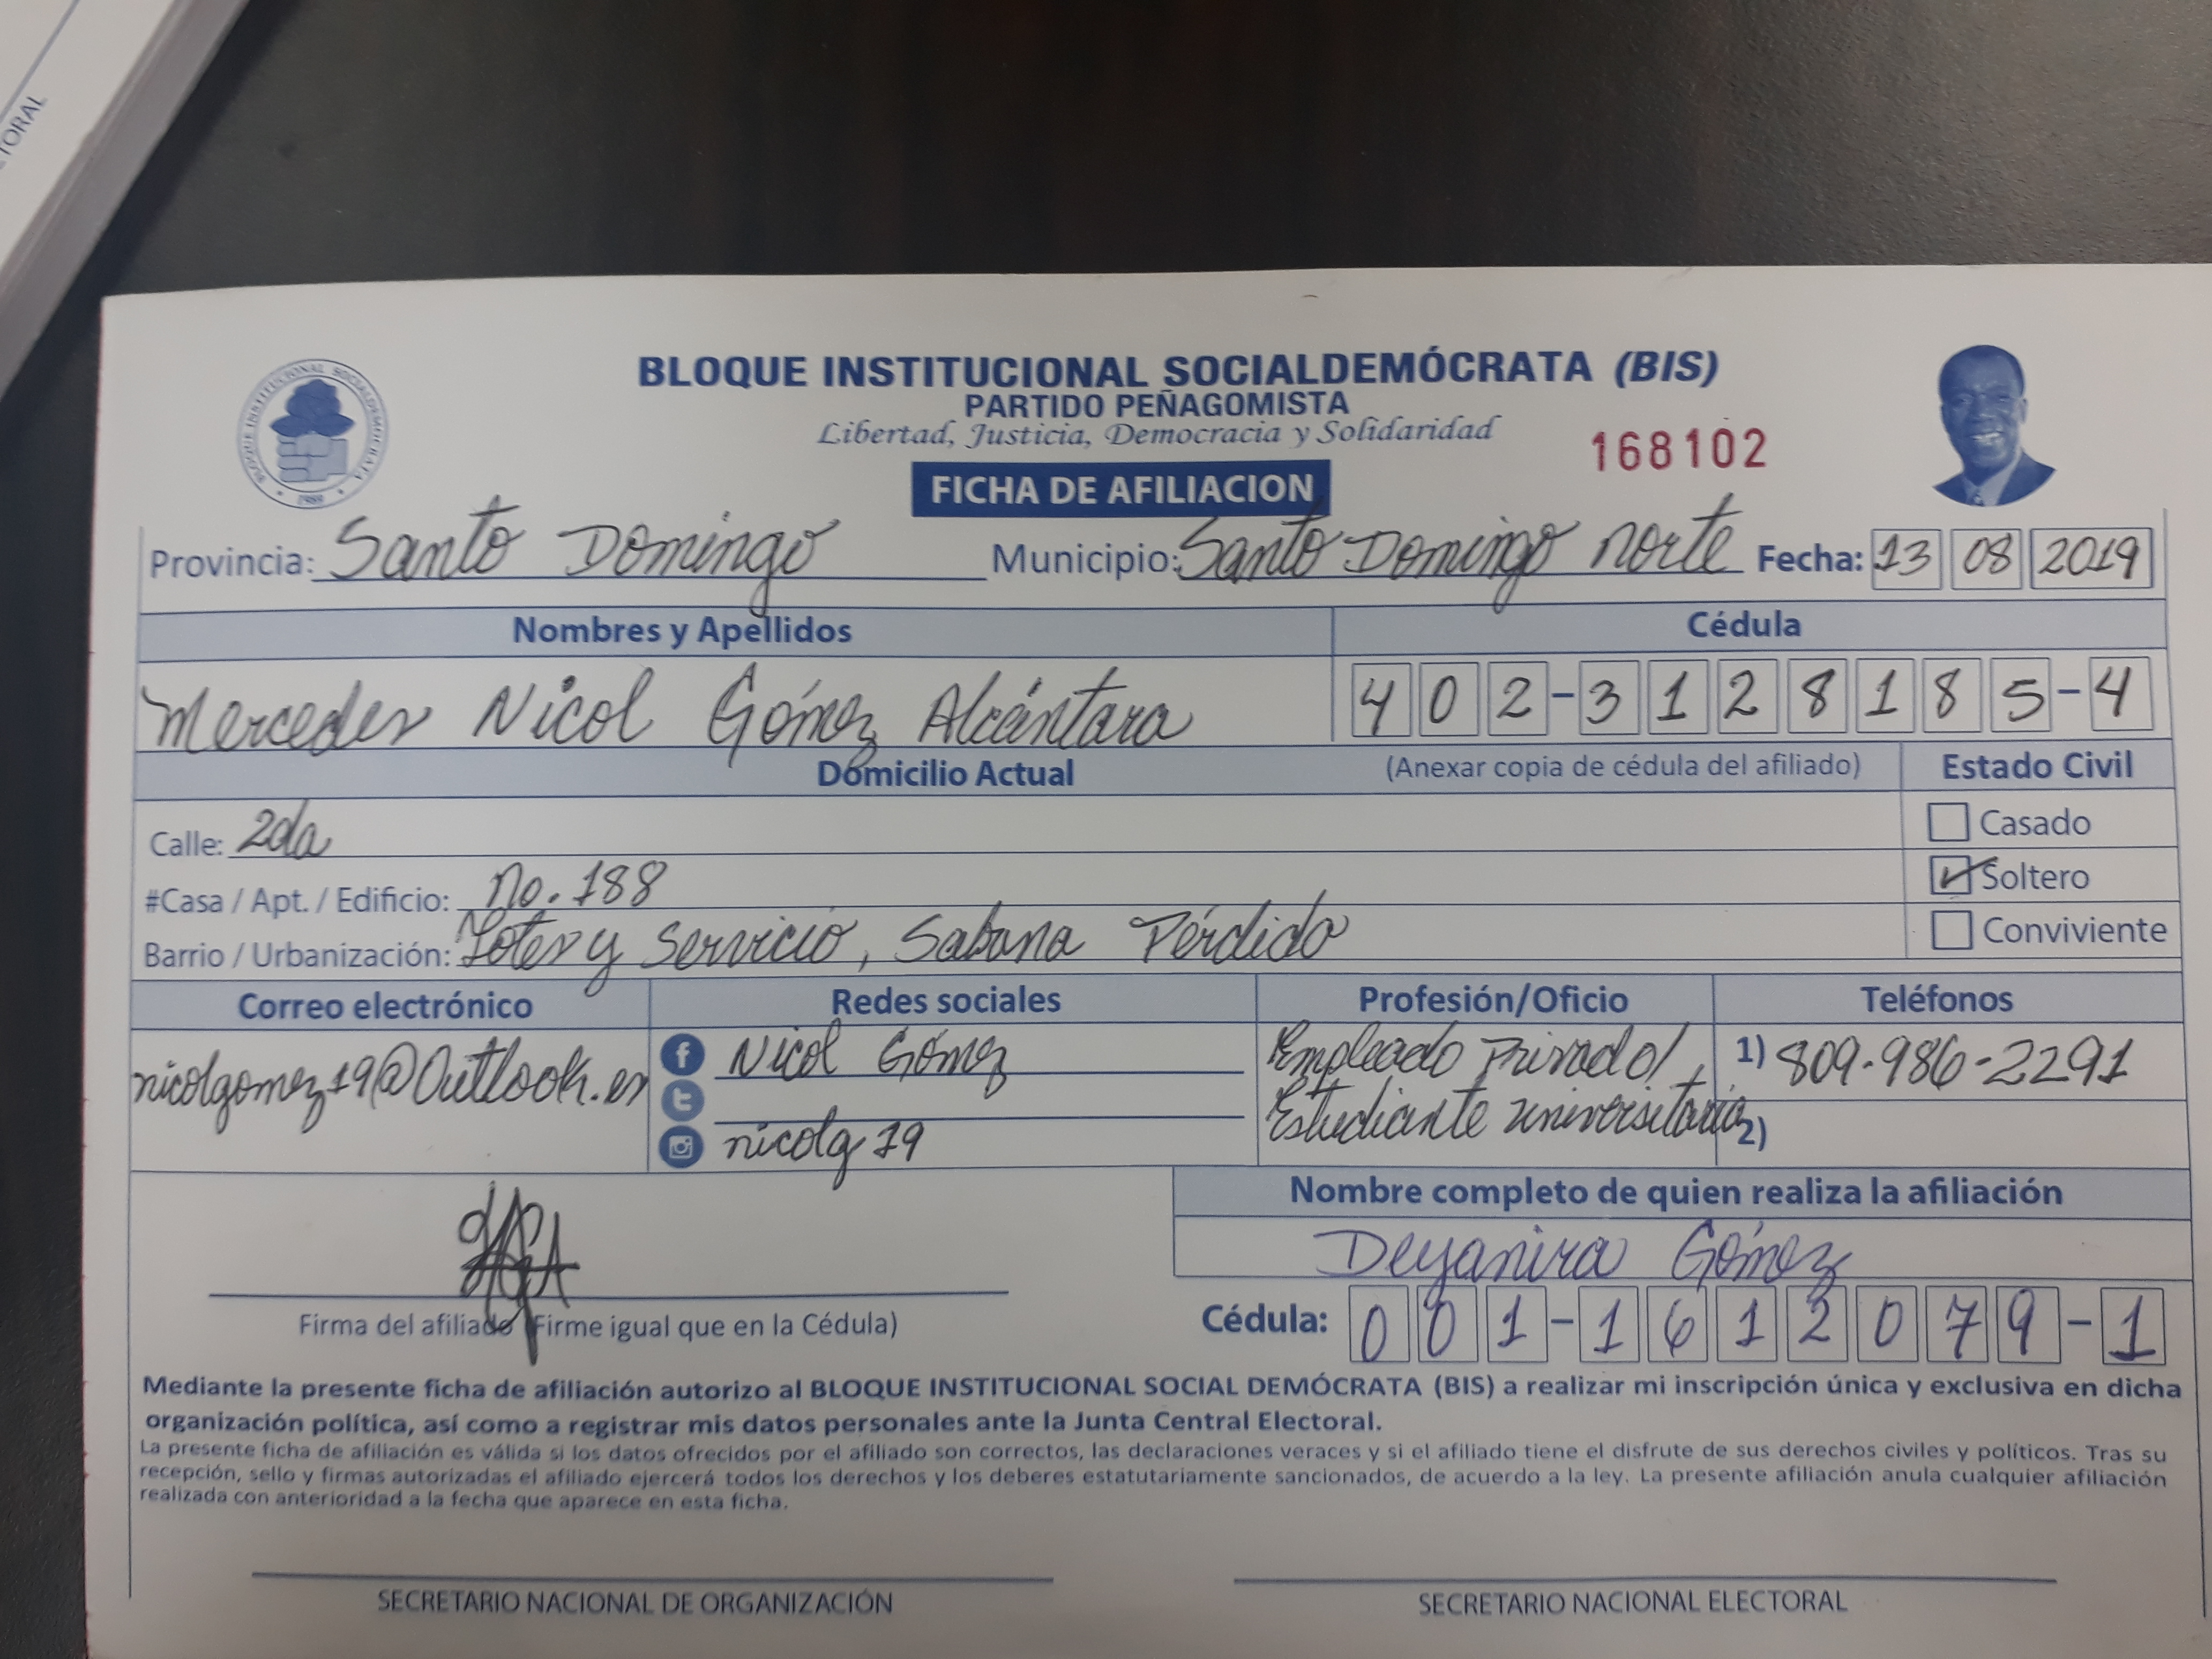 TORAL
BLOQUE INSTITUCIONAL SOCIALDEMÓCRATA (BIS)
PARTIDO PEÑAGOMISTA
Libertad, Justicia, Democracia y Solidaridad
168102
BLOQUE INSTITUCIONAL SOCIALDEMOCRATA
FICHA DE AFILIACION
Provincia: Santo Domingo Municipio: Santo Domingo norte Fecha: 13 08 2019
Nombres y Apellidos Cédula
Mercedes Nicol Gómez Alcántara 402-3128185-4
Domicilio Actual (Anexar copia de cédula del afiliado) Estado Civil
Calle: 2da Casado
#Casa / Apt. / Edificio: No. 188 Soltero
Barrio / Urbanización: Lotes y Servicio, Sabana Pérdida Conviviente
Correo electrónico Redes sociales Profesión/Oficio Teléfonos
nicolgomez19@Outlook.es Nicol Gómez Empleado Privado/ 1) 809-986-2291
nicolg19 Estudiante universitaria 2)
Nombre completo de quien realiza la afiliación
Deyanira Gómez
Firma del afiliado (Firme igual que en la Cédula) Cédula: 001-1612079-1
Mediante la presente ficha de afiliación autorizo al BLOQUE INSTITUCIONAL SOCIAL DEMÓCRATA (BIS) a realizar mi inscripción única y exclusiva en dicha
organización política, así como a registrar mis datos personales ante la Junta Central Electoral.
La presente ficha de afiliación es válida si los datos ofrecidos por el afiliado son correctos, las declaraciones veraces y si el afiliado tiene el disfrute de sus derechos civiles y políticos. Tras su
recepción, sello y firmas autorizadas el afiliado ejercerá todos los derechos y los deberes estatutariamente sancionados, de acuerdo a la ley. La presente afiliación anula cualquier afiliación
realizada con anterioridad a la fecha que aparece en esta ficha.
SECRETARIO NACIONAL DE ORGANIZACIÓN SECRETARIO NACIONAL ELECTORAL